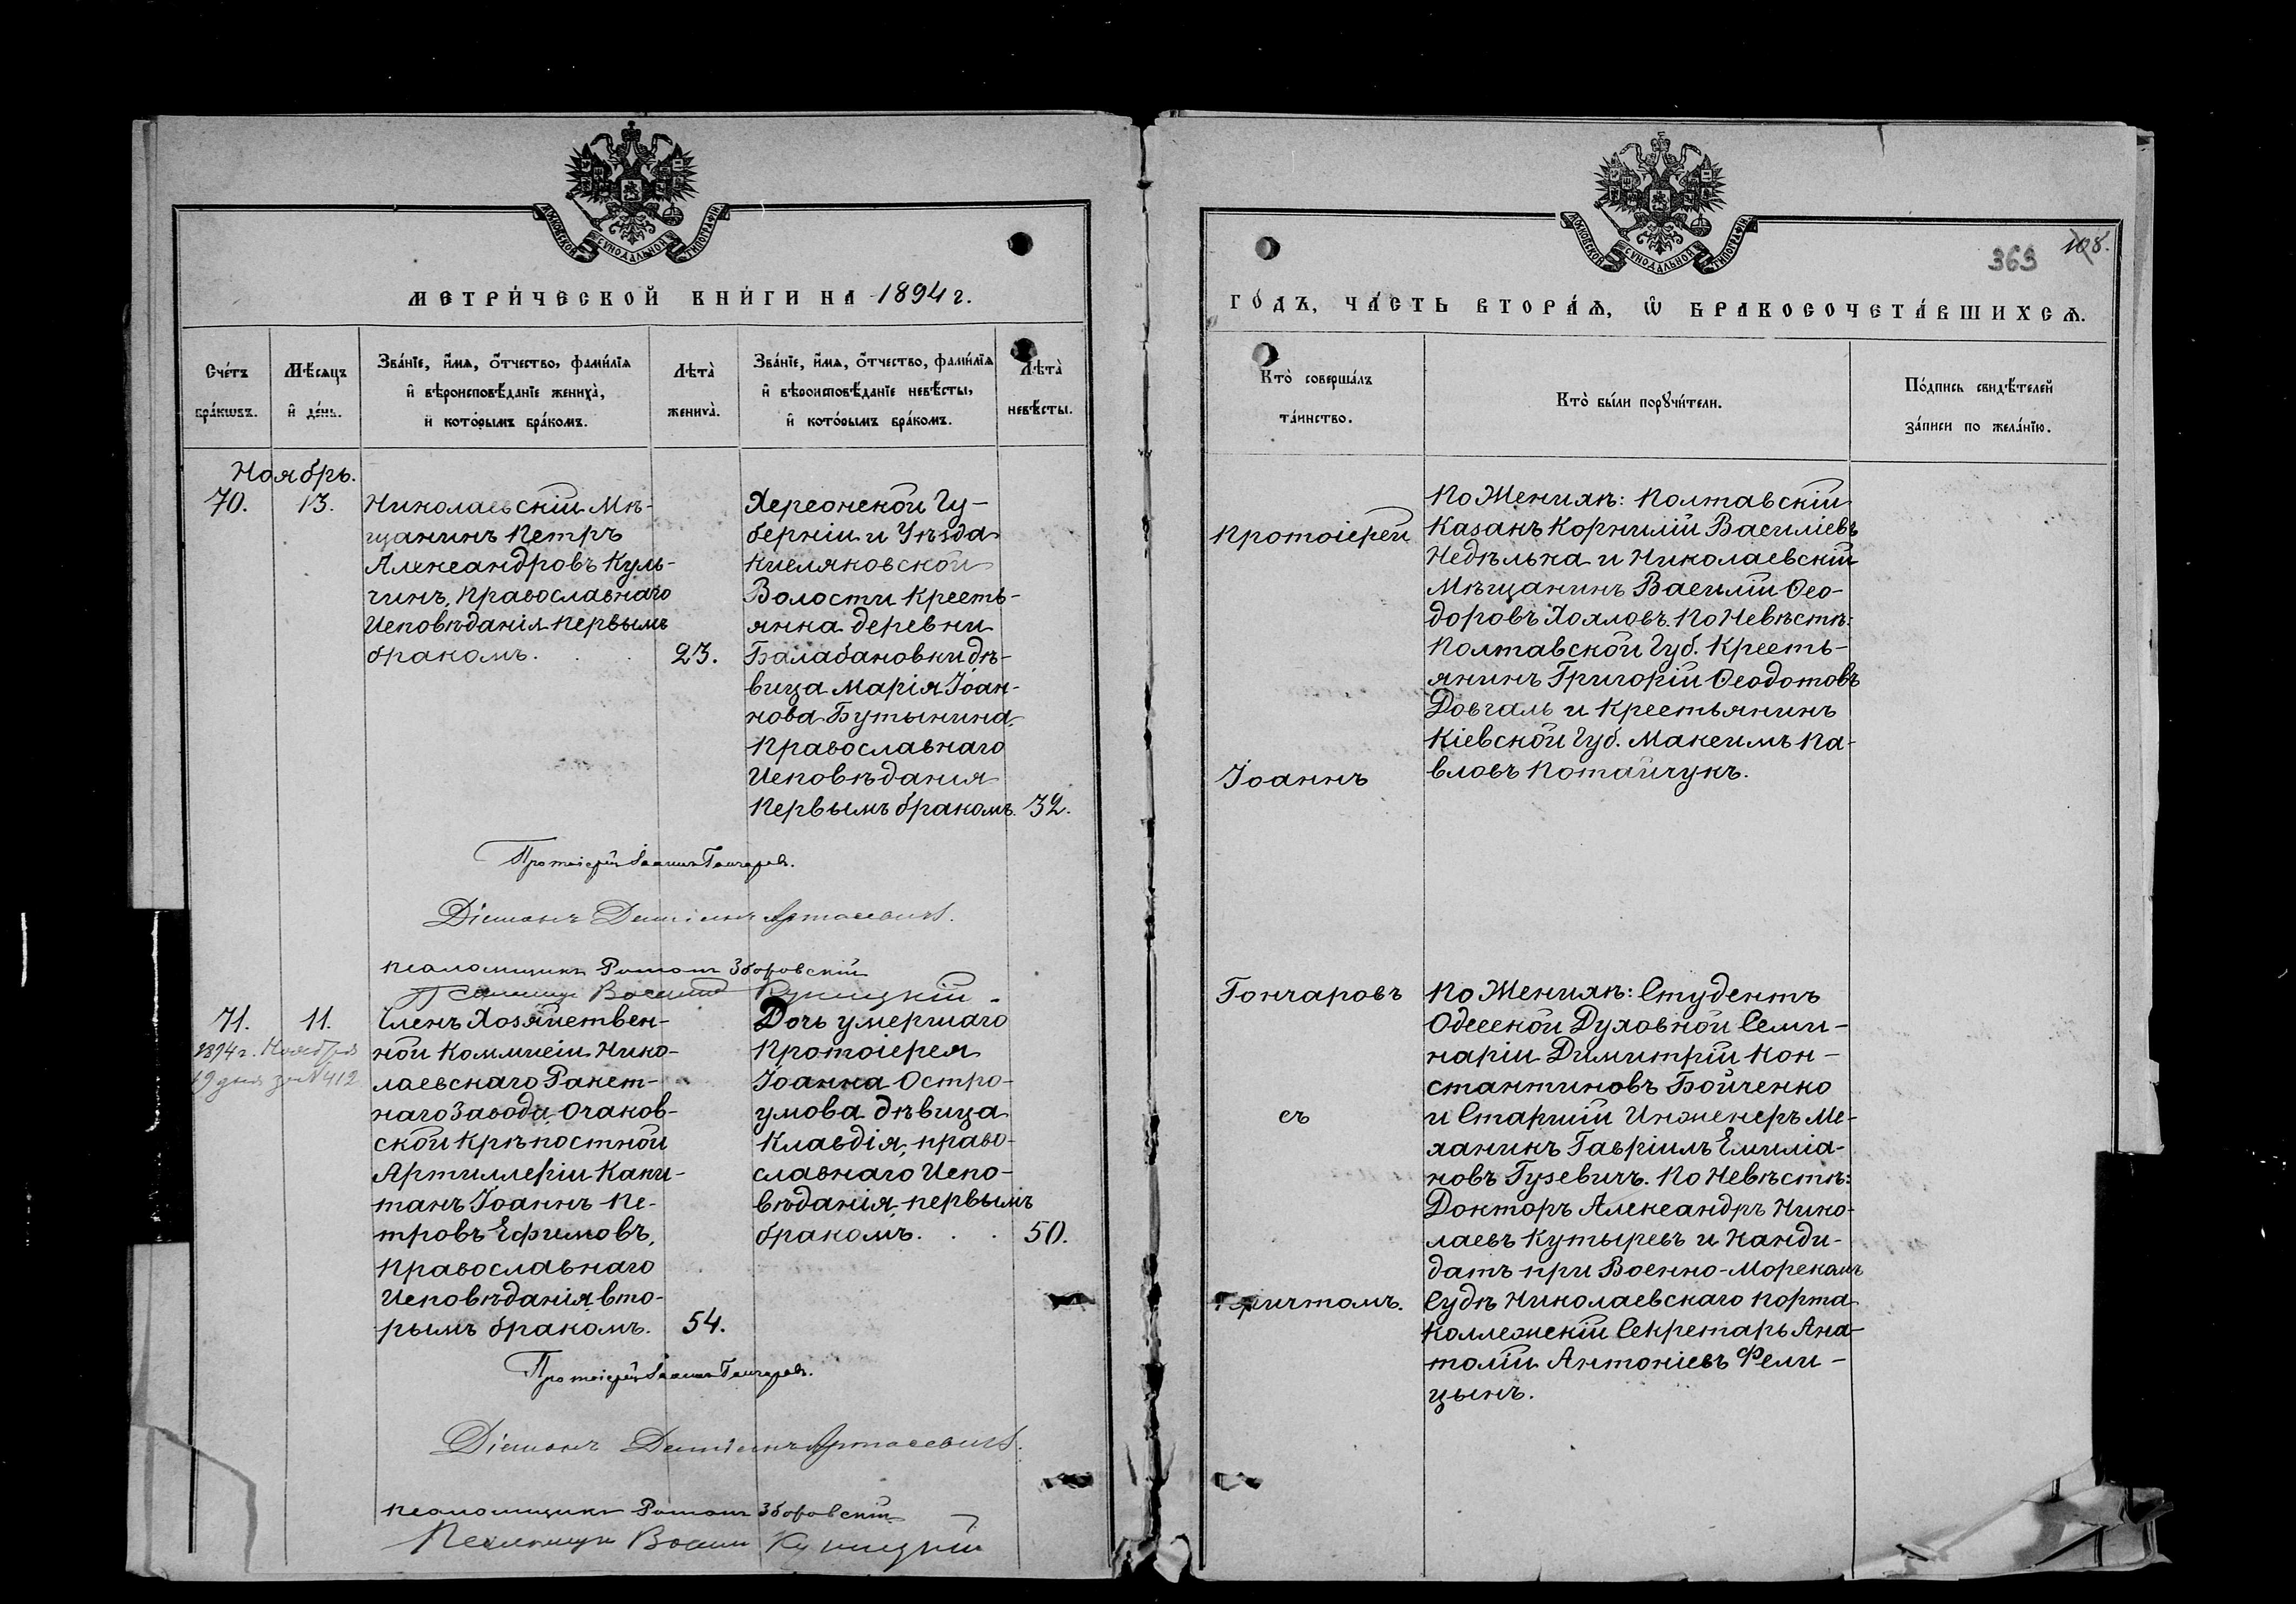 МОСКОВСКОЙ СУНОДАЛЬНОЙ ТИПОГРАФІИ
МЕТРИ́ЧЕСКОЙ КНИ́ГИ НА 1894 г.
Сче́тъ бра́кωвъ.
Мѣ́сяцъ и҆ де́нь.
Зва́нїе, и҆́мѧ, ѻ҆́тчество, фами́лїѧ
и҆ вѣроисповѣ́данїе жениха̀,
и҆ кото́рымъ бра́комъ.
Лѣта̀
жениха̀.
Зва́нїе, и҆́мѧ, ѻ҆́тчество, фами́лїѧ
и҆ вѣроисповѣ́данїе невѣ́сты,
и҆ кото́рымъ бра́комъ.
Лѣта̀
невѣ́сты.
Ноябрь.
70.
13.
Николаевскій Мѣ-
щанинъ Петръ
Александровъ Куль-
чинъ, Православнаго
Исповѣданія Первымъ
бракомъ.
23.
Херсонской Гу-
берніи и Уѣзда
Кисляковской
Волости Кресть-
янка деревни
Балабановки дѣ-
вица Марія Іоан-
нова Бутынина,
Православнаго
Исповѣдания
Первымъ бракомъ.
32.
Протоіерей Іоаннъ Гончаровъ.
Діаконъ Даміанъ Артасевичъ.
Псаломщикъ Романъ Зборовскій
Псаломщ Василій Куницкій
71.
11.
1894 г. Ноября
19 дня за №412
Членъ Хозяйствен-
ной Коммисіи Нико-
лаевскаго Ракет-
наго Завода, Очаков-
ской Крѣпостной
Артиллеріи Капи-
танъ Іоаннъ Пе-
тровъ Ефимовъ,
Православнаго
Исповѣданія, вто-
рымъ бракомъ.
54.
Дочь умершаго
Протоіерея
Іоанна Остро-
умова дѣвица
Клавдія, право-
славнаго Испо-
вѣданія, первымъ
бракомъ.
50.
Протоіерей Іоаннъ Гончаровъ.
Діаконъ Даміанъ Артасевичъ.
Псаломщикъ Романъ Зборовскій
Псаломщи Васили Куницкій
МОСКОВСКОЙ СУНОДАЛЬНОЙ ТИПОГРАФІИ
363
108.
ГО́ДЪ, ЧА́СТЬ ВТОРА́Ѧ, Ѽ БРАКОСОЧЕТА́ВШИХСѦ.
Кто̀ соверша́лъ
та́инство.
Кто̀ бы́ли порꙋчи́тели.
По́дпись свидѣ́телей
за́писи по жела́нїю.
Протоіерей
Іоаннъ
Гончаровъ
съ
Причтомъ.
По Женихѣ: Полтавскій
Казакъ Корнилій Василіевъ
Недѣлька и Николаевскій
Мѣщанинъ Василій Ѳео-
доровъ Хохловъ. По Невѣстѣ:
Полтавской Губ. Кресть-
янинъ Григорій Ѳеодотовъ
Довгаль и Крестьянинъ
Кіевской Губ. Максимъ Па-
вловъ Потайчукъ.
По Женихѣ: Студентъ
Одесской Духовной Семи-
наріи Димитрій Кон-
стантиновъ Бойченко
и Старшій Инженеръ Ме-
ханикъ Гавріилъ Емиліа-
новъ Гузевичъ. По Невѣстѣ:
Докторъ Александръ Нико-
лаевъ Кутыревъ и Канди-
датъ при Военно-Морскомъ
Судѣ Николаевскаго Порта
Коллежскій Секретарь Ана-
толій Антоніевъ Фели-
цынъ.